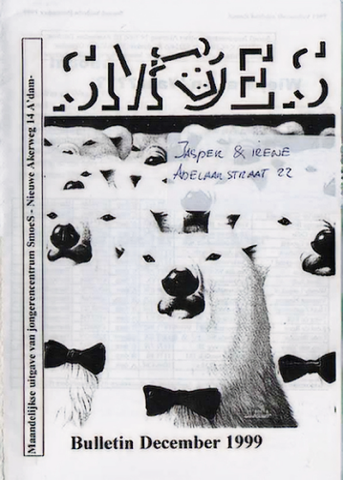 SMOES
JASPER & IRENE
ADELAAR STRAAT 22
Maandelijkse uitgave van jongerencentrum SmoeS - Nieuwe Akerweg 14 A'dam-
Bulletin December 1999